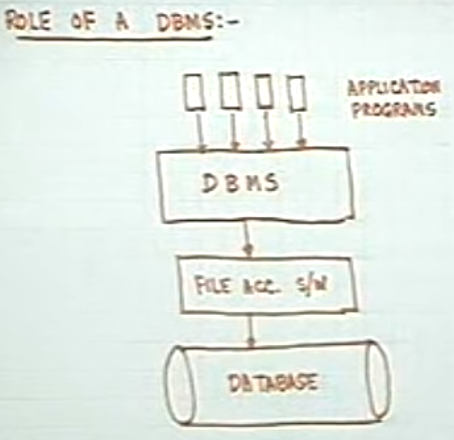 ROLE OF A DBMS:-
APPLICATION
PROGRAMS
DBMS
FILE ACC. S/W
DATABASE